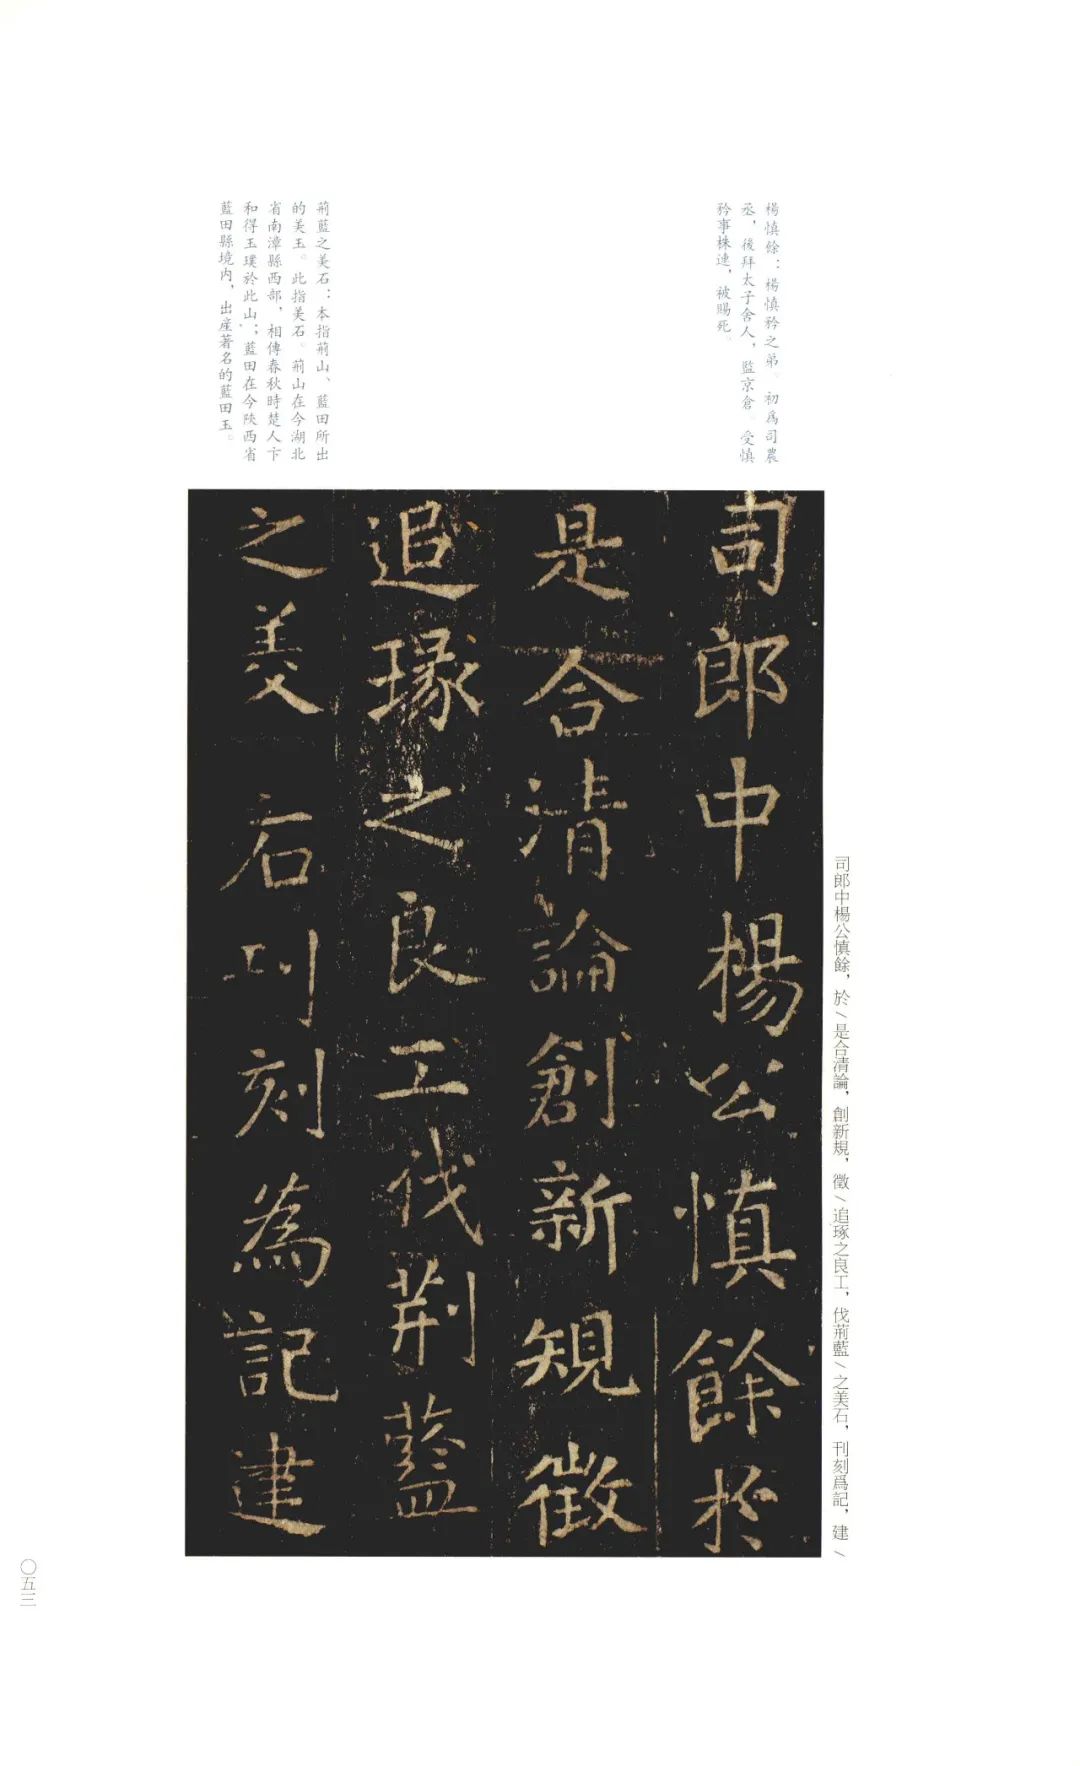 楊慎餘：楊慎矜之弟。初爲司農
丞，後拜太子舍人，監京倉。受慎
矜事株連，被賜死。
荊藍之美石：本指荊山、藍田所出
的美玉。此指美石。荊山在今湖北
省南漳縣西部，相傳春秋時楚人卞
和得玉璞於此山；藍田在今陝西省
藍田縣境内，出産著名的藍田玉。
司郎中楊公慎餘於
是合清論創新規徵
追琢之良工伐荊藍
之美石刊刻為記建
司郎中楊公慎餘，於/是合清論，創新規，徵/追琢之良工，伐荊藍/之美石，刊刻爲記，建/
〇五三